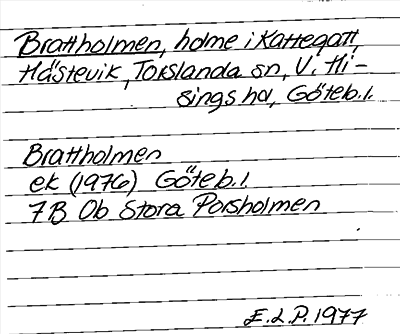 Brattholmen, holme i Kattegatt,
Hästevik, Torslanda sn, V. Hi-
sings hd, Göteb.l.
Brattholmen
ek (1976) Göteb.l.
7B Ob Stora Porsholmen
E.L.P. 1977